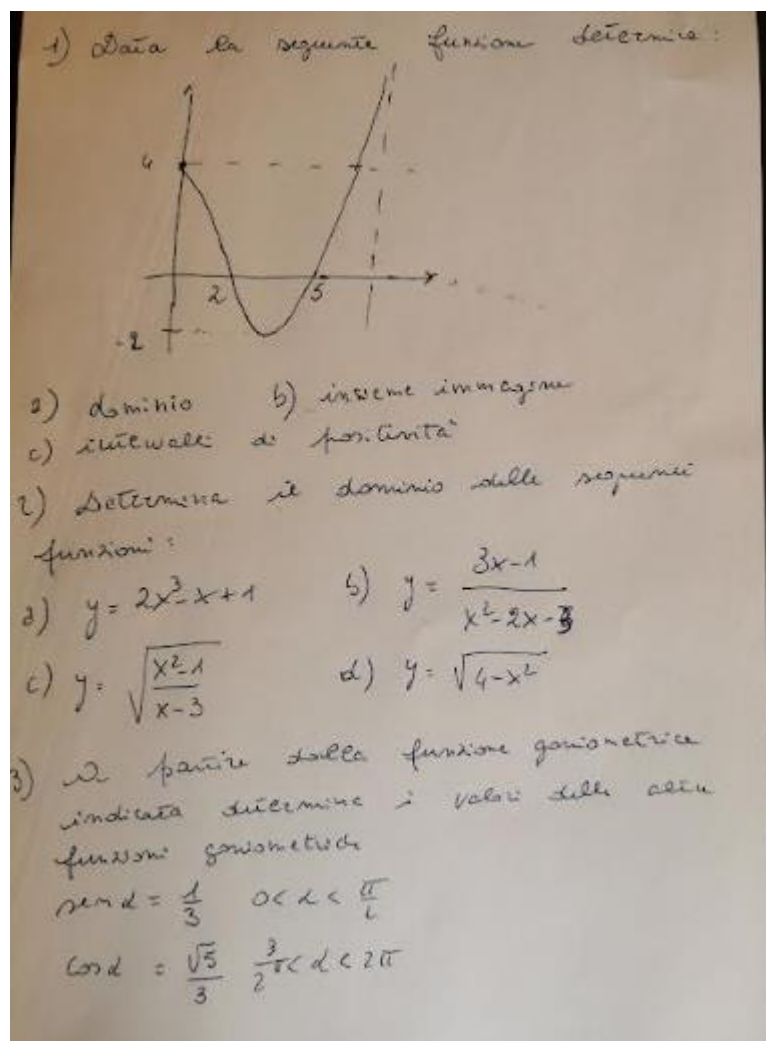 1) Data la seguente funzione determina:
4
2 5
-2
a) dominio b) insieme immagine
c) intervalli di positività
2) Determina il dominio delle seguenti
funzioni:
a) y = 2x³-x+1 b) y = (3x-1)/(x²-2x-3)
c) y = √((x²-1)/(x-3)) d) y = √(4-x²)
3) A partire dalla funzione goniometrica
indicata determina i valori delle altre
funzioni goniometriche
sen α = 1/3 0< α < π/2
cos α = √5/3 3/2 π< α < 2π